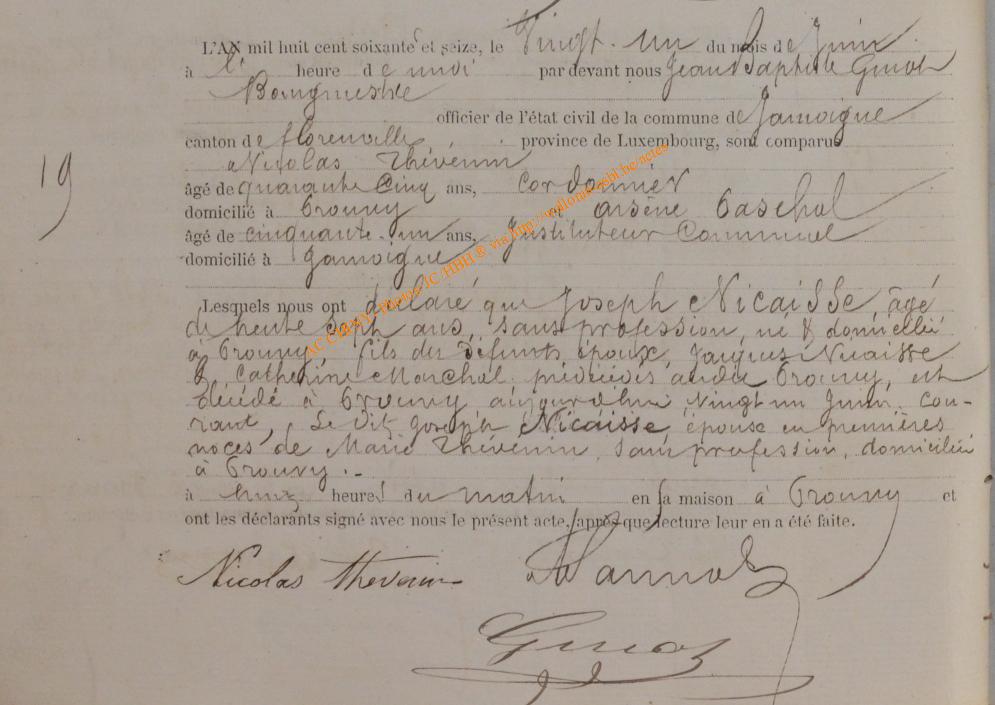 L'AN mil huit cent soixante et seize, le Vingt-un du mois de Juin
à l' heure de midi par devant nous Jean Baptiste Guiot
Bourgmestre
officier de l'état civil de la commune de Jamoigne
canton de florenville province de Luxembourg, sont comparus
Nicolas Thévenin
19
âgé de quarante Cinq ans, Cordonnier
domicilié à Prouvy et arsène
âgé de cinquante-un ans, Instituteur Communal
domicilié à Jamoigne
Lesquels nous ont déclaré que Joseph Nicaisse âgé
de trente sept ans, sans profession, né & domicilié
à Prouvy, fils des défunts époux Jacques Nicaisse
& Catherine Marchal prédécédés audit Prouvy, est
décédé à Prouvy aujourd'hui vingt un Juin cou-
rant, Le dit Joseph Nicaisse, époux en premières
noces de Marie Thévenin, sans profession, domiciliée
à Prouvy.-
à heures du matin en sa maison à Prouvy et
ont les déclarants signé avec nous le présent acte, après que lecture leur en a été faite.
Nicolas thevenin
Guiot